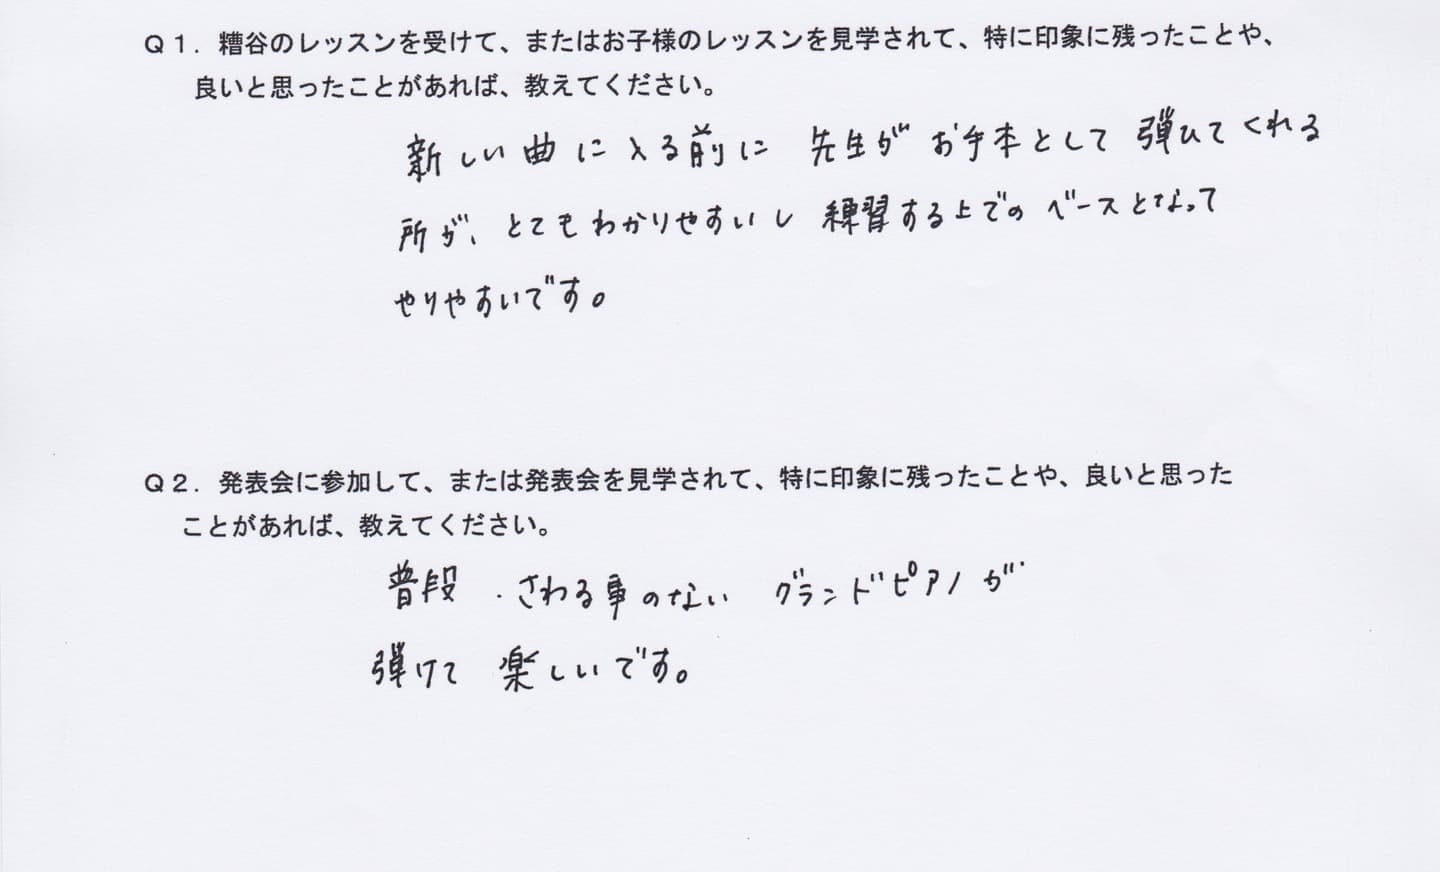 Ｑ１．糟谷のレッスンを受けて、またはお子様のレッスンを見学されて、特に印象に残ったことや、
良いと思ったことがあれば、教えてください。
新しい曲に入る前に 先生が お手本として 弾いてくれる
所が、とてもわかりやすいし 練習する上でのベースとなって
やりやすいです。
Ｑ２．発表会に参加して、または発表会を見学されて、特に印象に残ったことや、良いと思った
ことがあれば、教えてください。
普段、さわる事のない グランドピアノが
弾けて 楽しいです。